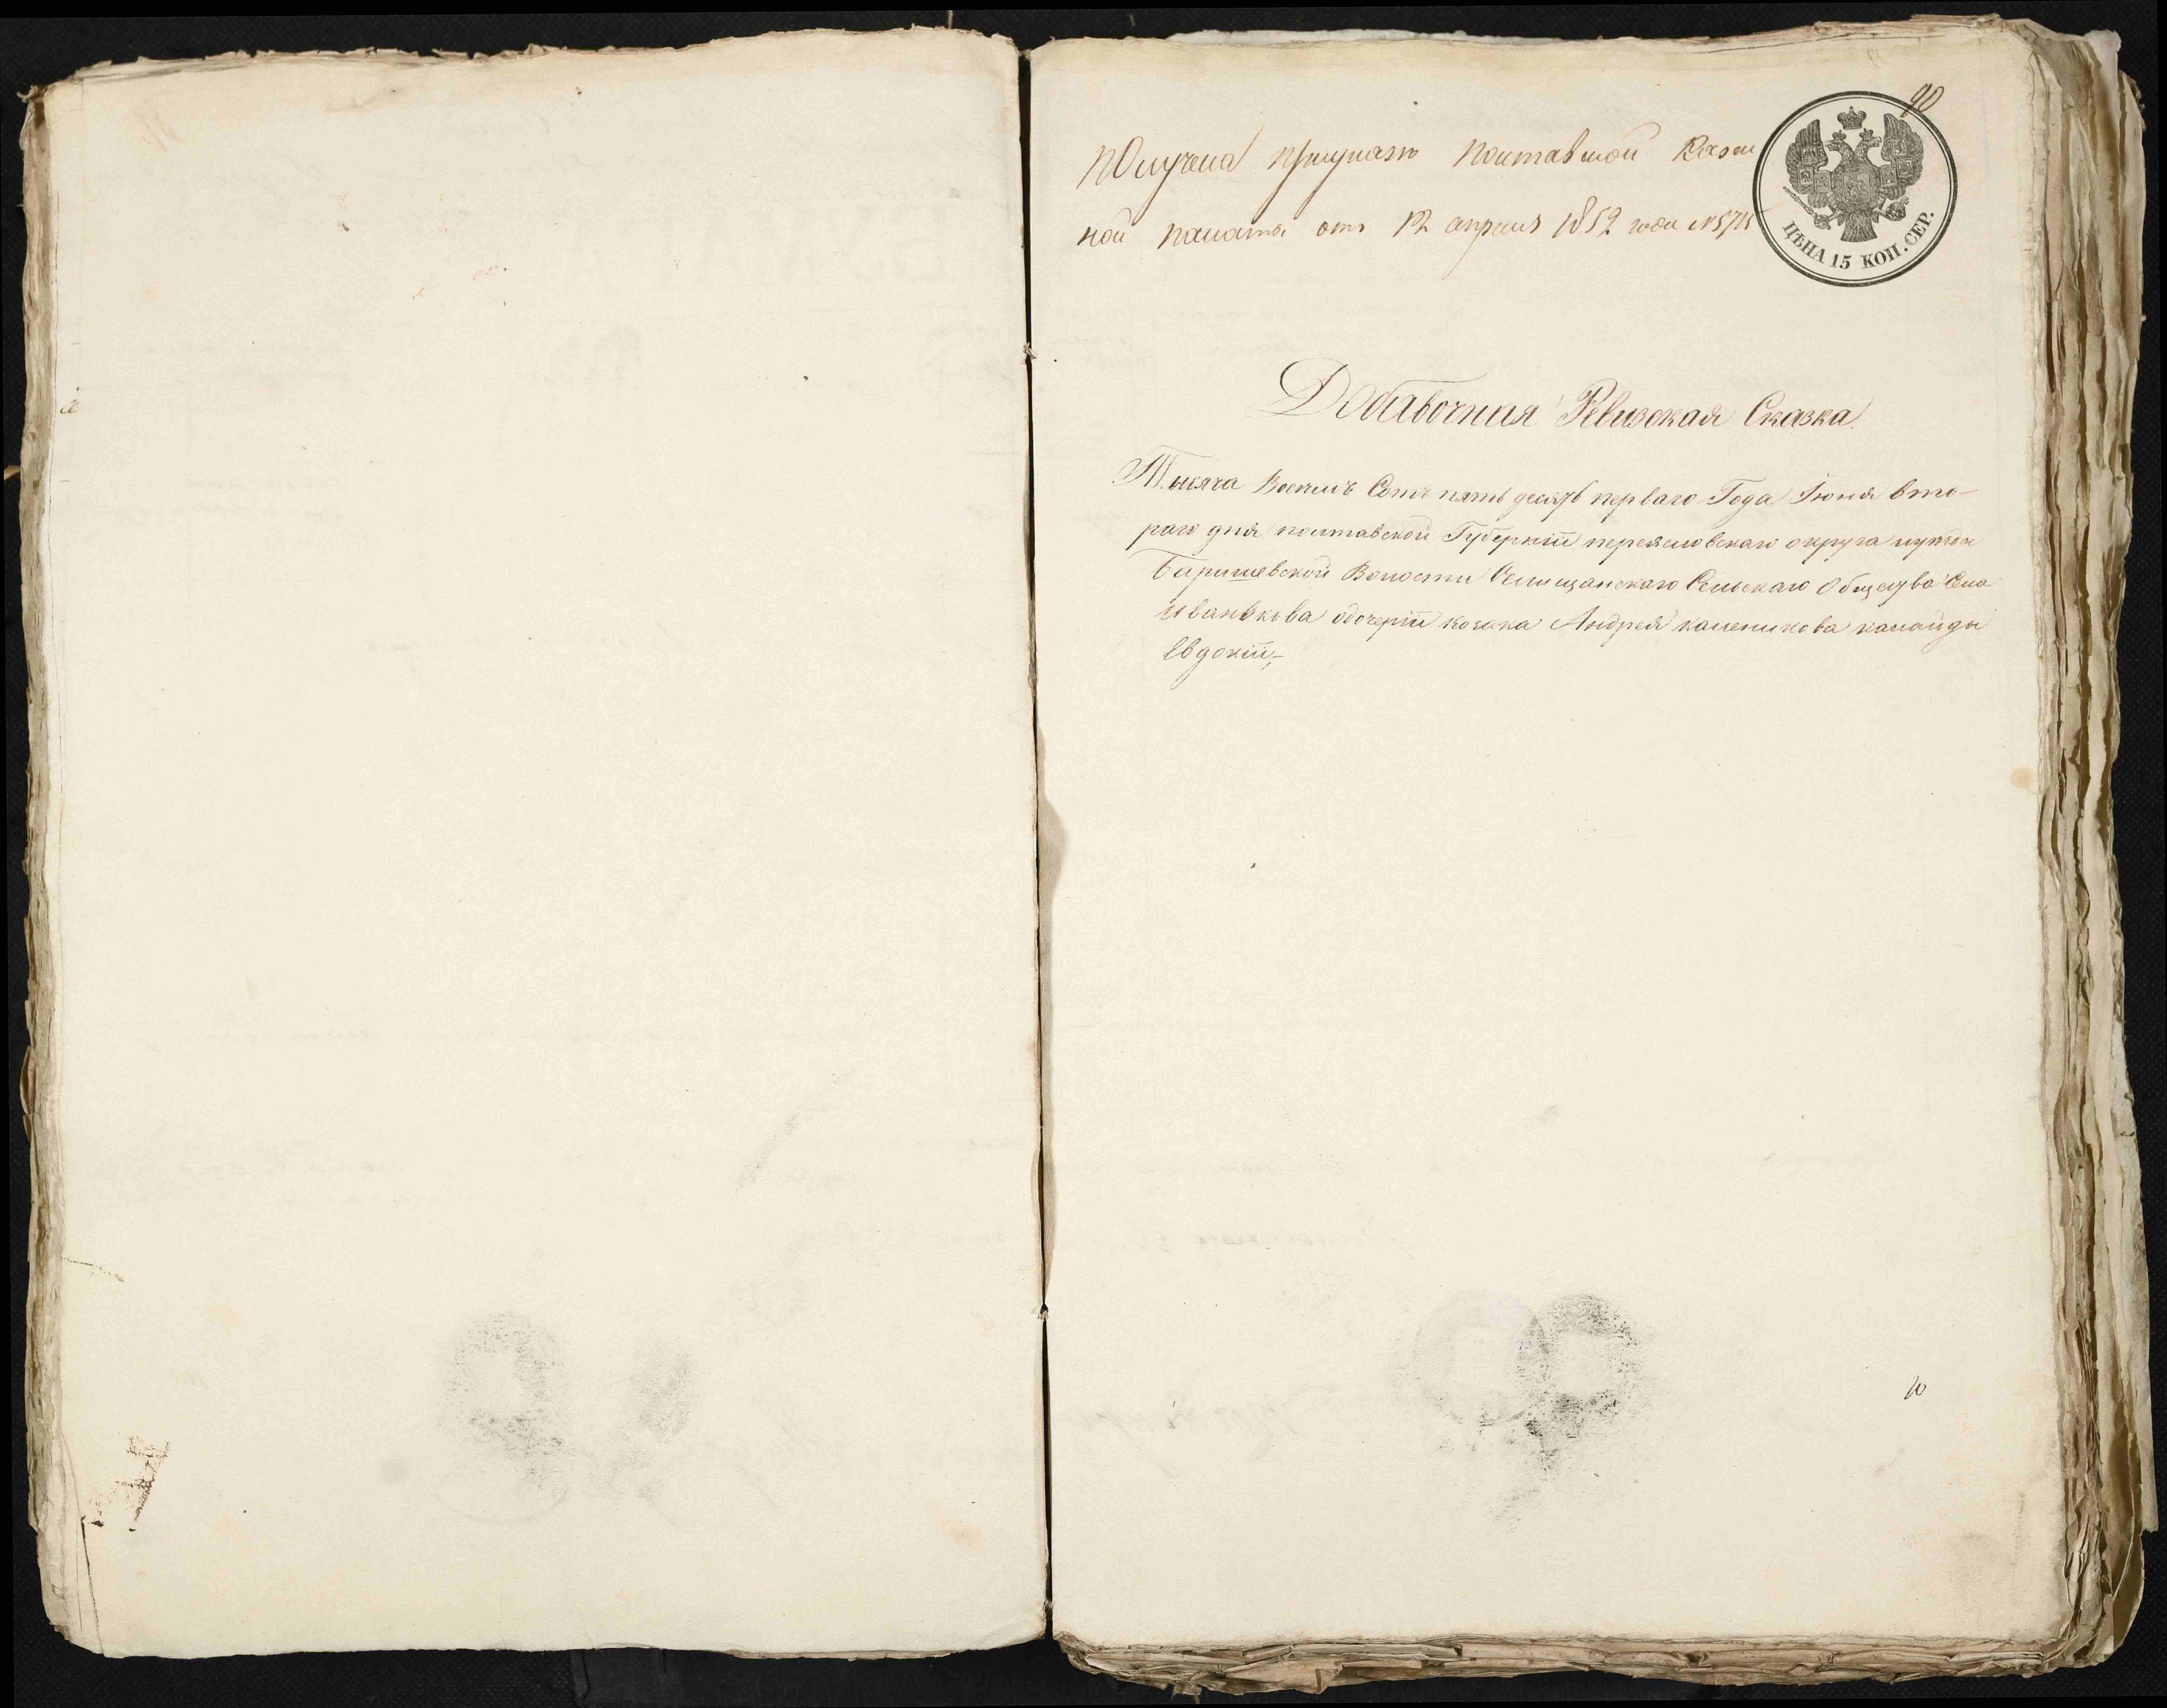 90
Получена при указе полтавской Казен
ной палаты от 12 апреля 1852 года №
ЦѢНА 15 КОП. СЕР.
Добавочная Ревизская Сказка.
Тысяча Восемъ Сотъ пять десятъ перваго Года Іюня вто-
раго дня полтавской Губерніи переясловскаго округа
Баришевской Волости Селищанскаго Сельскаго Общества Села
Иванкова одочери козака Андрея каленикова
Евдокіи,-